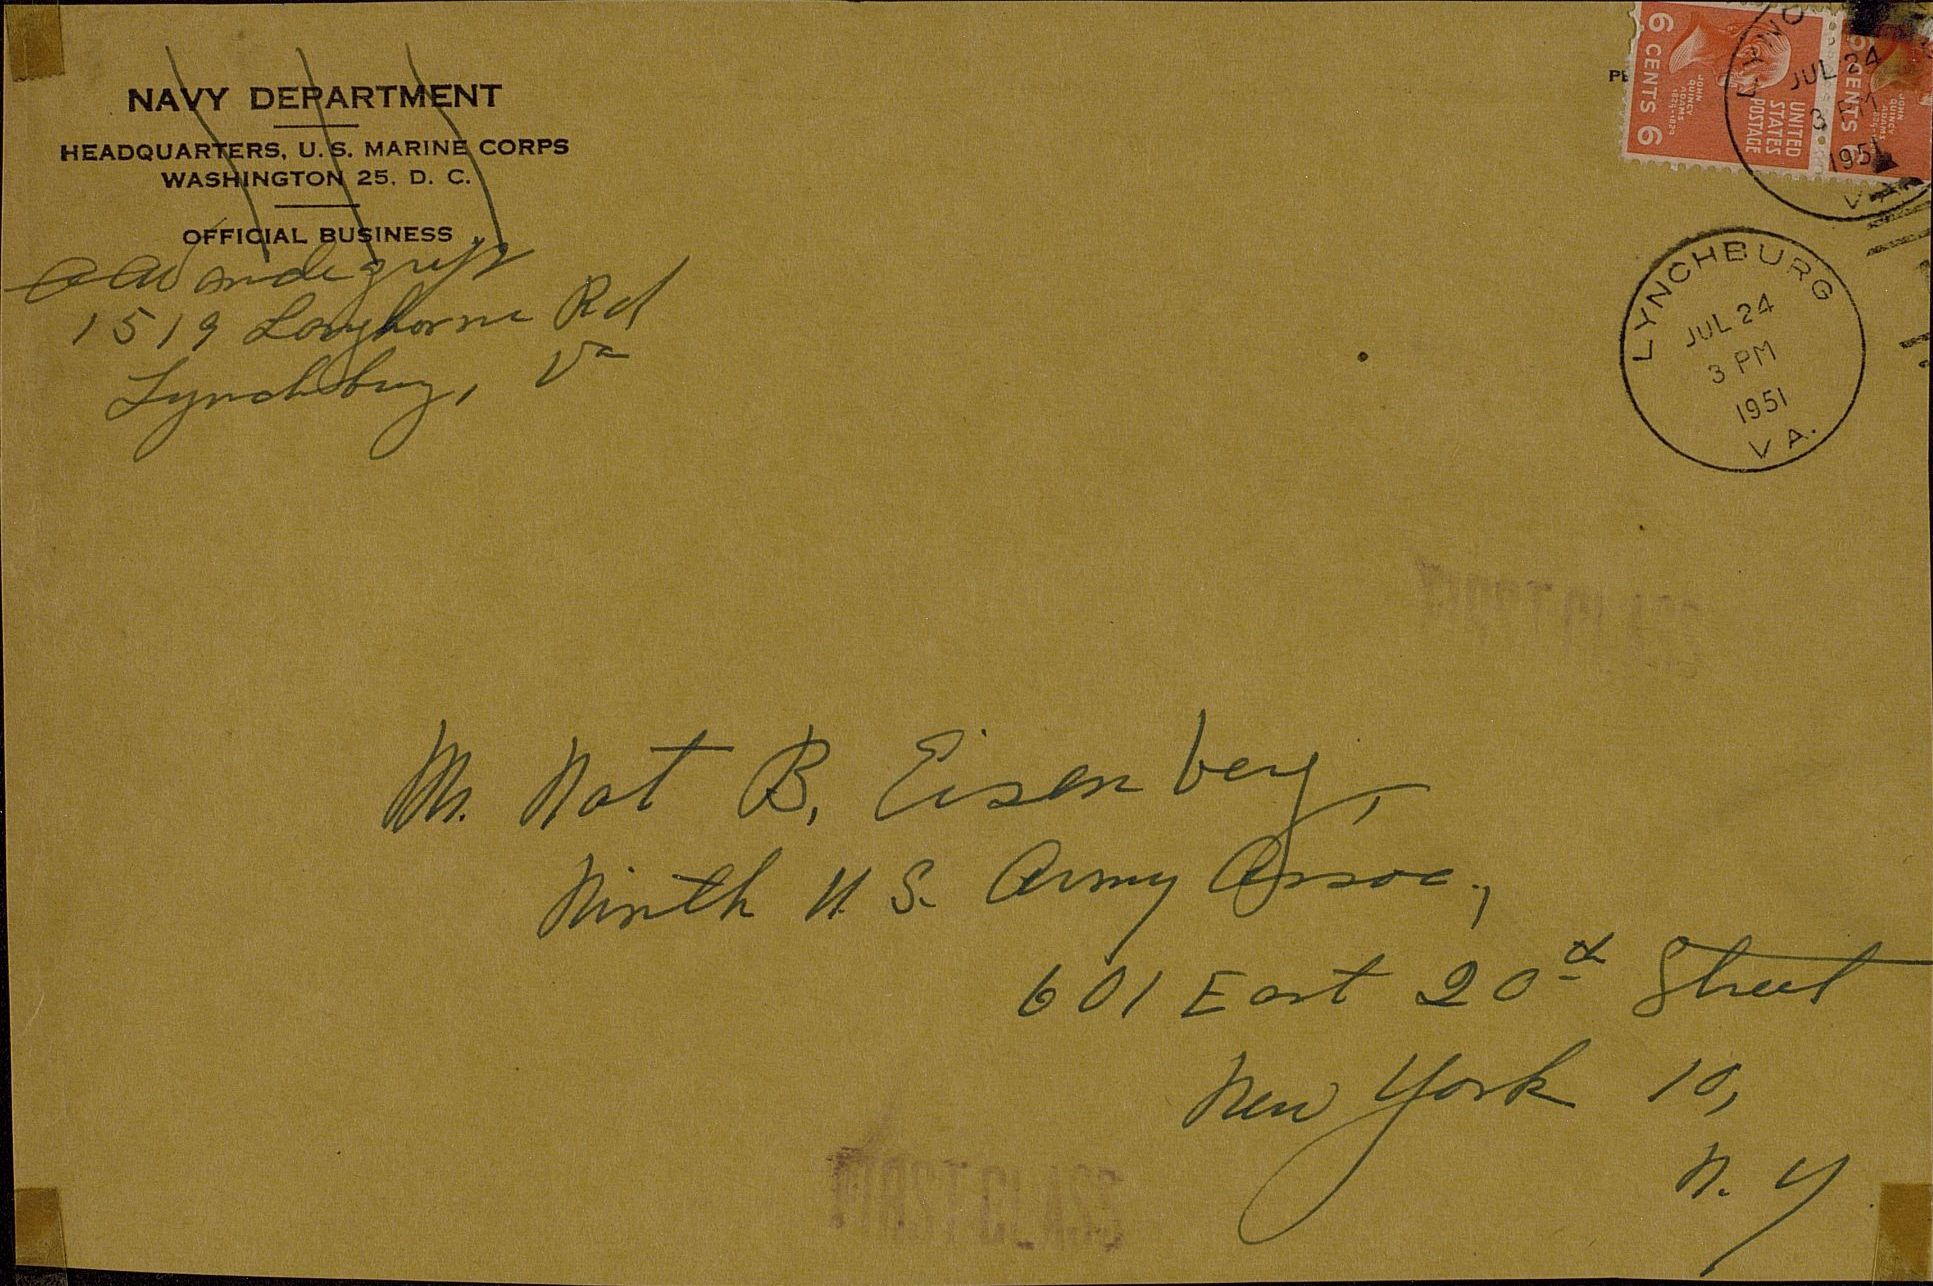 NAVY DEPARTMENT
HEADQUARTERS, U.S. MARINE CORPS
WASHINGTON 25, D. C.
OFFICIAL BUSINESS
AAVandegrift
1519 Langhorne Rd
Lynchburg, Va
6 CENTS 6
JOHN QUINCY ADAMS 1825-1829
UNITED STATES POSTAGE
CENTS 6
JOHN QUINCY ADAMS
JUL 24
3 PM
1951
LYNCHBURG
JUL 24
3 PM
1951
VA.
Mr. Nat B. Eisenberg,
Ninth U.S. Army Assoc.,
601 East 20th Street
New York 10,
N.Y.
FIRST CLASS
FIRST CLASS